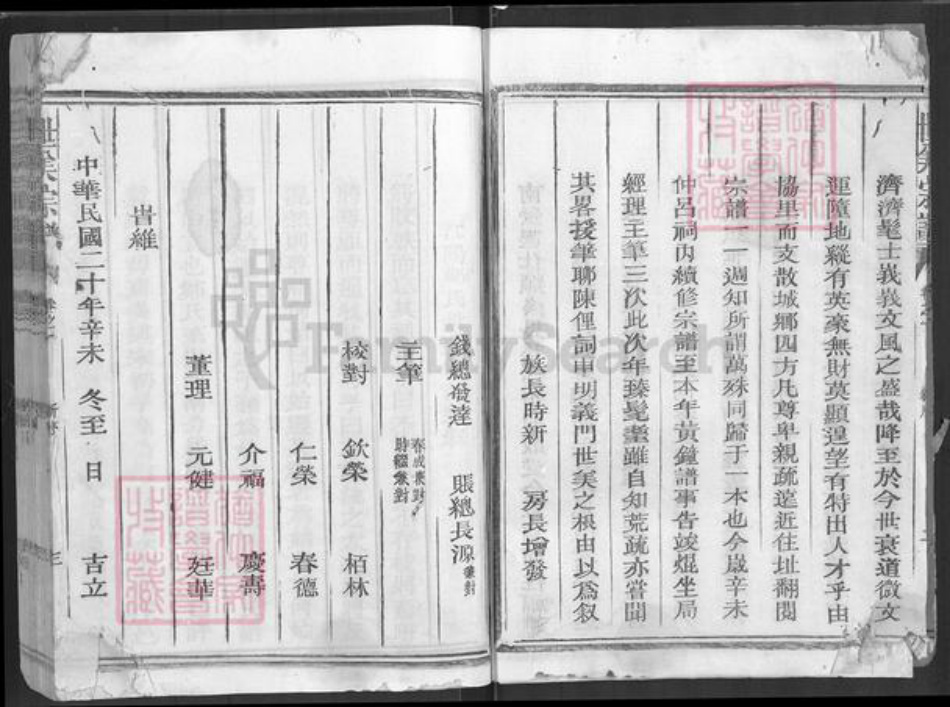 濟濟髦士峩峩文風之盛哉降至於今世衰道微文
運墮地縱有英豪無財莫顯遑望有特出人才乎由
協里而支散城鄉四方凡尊卑親疏遠近住址翻閱
宗譜一週知所謂萬殊同歸于一本也今歲辛未
仲呂祠內續修宗譜至本年黃鐘譜事告竣焜坐局
經理主筆三次此次年臻髦耋雖自知荒疏亦嘗聞
其畧援筆聊陳俚詞申明義門世美之根由以爲叙
族長時新 房長增發
錢總發達 賬總長源兼對
主筆 春成兼對 時耀兼對
校對 欽榮 栢林
仁榮 春德
介福 慶壽
董理 元健 廷華
旹維
中華民國二十年辛未 冬至 日 吉立
FamilySearch